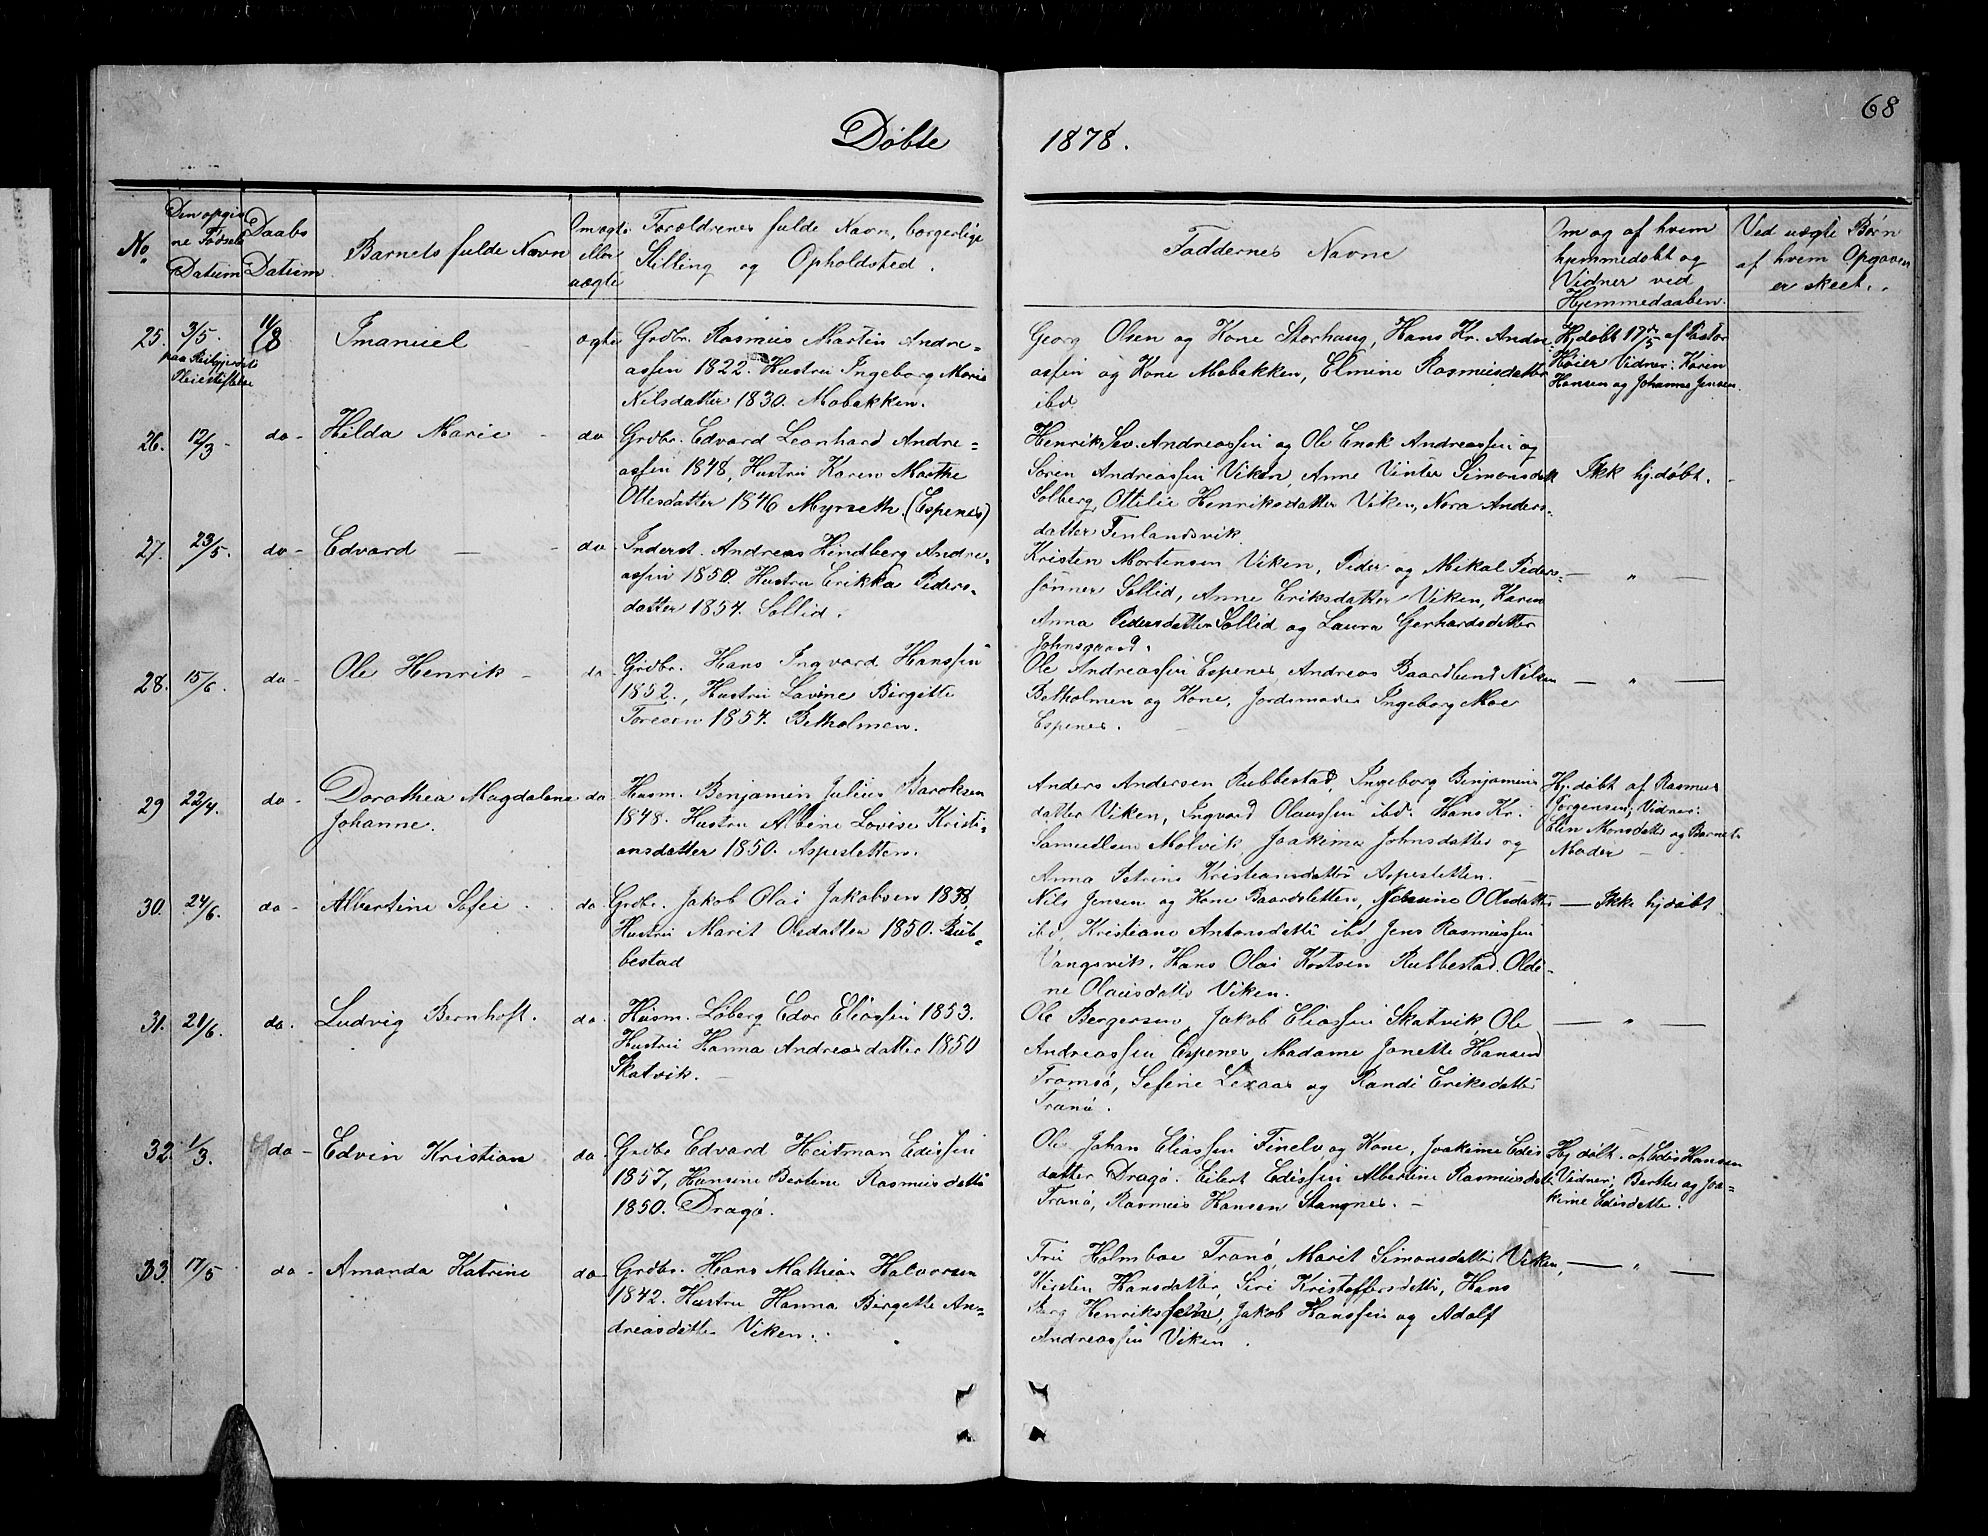 68
Døbte 1878.
No. | Den opgivne Fødsels Datum | Daabs Datum | Barnets fulde Navn | Om ægte eller uægte | Forældrenes fulde Navn, borgerlige Stilling og Opholdsted. | Faddernes Navne | Om og af hvem hjemmedøbt og Vidner ved Hjemmedaaben. | Ved uægte Børn af hvem Opgaven er skeet.
25. 3/5 11/8 Imanuel ægte Grdbr. Rasmus Martin Andre=
assen 1822. Hustru Ingeborg Marie
Nilsdatter 1830. Mobakken.
Georg Olsen og Kone Storhaug, Hans Kr. Andre
assen og Kone Mobakken, Elmine Rasmusdatter
ibd.
Hjdøbt 17/5 af Pastor
Høier Vidner: Karen
Hansen og Johanna Jensen.
26. 12/3 - do - Hilda Marie - do Grdbr. Edvard Leonhard Andre=
assen 1848, Hustru Karen Marthe
Ottesdatter 1846 Myrseth. (Espenes)
Henrik Sev. Andreassen og Ole Enok Andreassen og
Søren Andreassen Viken, Anne Vinter Simonsdatt
Solberg, Ottilie Henriksdatter Viken, Nora Anders-
datter Finlandsvik.
Ikk hjdøbt.
27. 23/5. do - Edvard - do Inderst. Andreas Lindberg Andre-
assen 1850. Hustru Erikka Peders-
datter 1854. Sollid.
Kristen Mortensen Viken, Peder og Mikal Peders-
sønner Sollid, Anne Eriksdatter Viken, Karen
Anna Pedersdatter Sollid og Laura Gerhardsdatter
Johnsgaard.
— " —
28. 15/6. do - Ole Henrik - do Grdbr. Hans Ingvard Hanssen
1852., Hustru Lavine Birgitte
Toresen 1854. Betholmen.
Ole Andreassen Espenes, Andreas Baardlund Nilsen
Betholmen og Kone, Jordemoder Ingeborg Moe
Espenes.
— " —
29 22/4. do - Dorothea Magdalena do Husm. Benjamin Julius Baroksen
Johanne. 1848. Hustru Albine Lovise Kristi-
ansdatter 1850. Aspesletten.
Anders Andersen Rubbestad, Ingeborg Benjamins
datter Viken, Ingvard Olaussen ibd. Hans Kr.
Samuelsen Molvik, Joakima Johnsdatter og
Anna Petrine Kristiansdatter Aspesletten.
Hj.døbt af Rasmus
Jørgensen; Vidner:
Elen Monsdatt og Barnets
Moder -
30. 24/6. do - Albertine Sofie . do. Grdbr. Jakob Olai Jakobsen 1838,
Hustru Marit Olsdatter 1850. Rub-
bestad
Nils Jensen og Kone Baardsletten, Olsdatter
ibd, Kristiane Antonsdatt ibd, Jens Rasmussen
Vangsvik, Hans Olai Rubbestad. Olde-
ne Olausdatter Viken.
— Ikke hjdøbt
31. 21/6. do. Ludvig Bernhoft. do. Husm. Løberg Edor Eliassen 1853.
Hustru Hanna Andreasdatter 1850
Skatvik. -
Ole Bergersen, Jakob Eliassen Skatvik, Ole
Andreassen Espenes, Madame Janette Hansen
Tromsø, Sefine Lexaas og Randi Eriksdatter
Tranø.
— " —
32. 1/3. do - Edvin Kristian do. Grdbr. Edvard Heitman Edissen
1857, Hansine Bertine Rasmusdatter
1850. Dragø.
Ole Johan Eliassen Finelv og Kone, Joakima Edis
datter Dragø. Eilert Edissen Albertine Rasmusdatter
Tranø, Rasmus Hansen Stangnes. -
Hjdøbt. af Edis Hansen
Vidner: Berthe og Joa=
kime Edisdatter.
33. 17/5 do - Amanda Katrine do- Grdbr. Hans Mathias Halvorsen
1842. Hustru Hanna Birgitte An-
dreasdatter Viken.
Fru Holmboe Tranø, Marit Simonsdatter Viken,
Kirsten Hansdatter, Siri Kristoffersdatter, Hans
Berg Henrikssen, Jakob Hanssen og Adolf
Andreassen Viken.
— " —